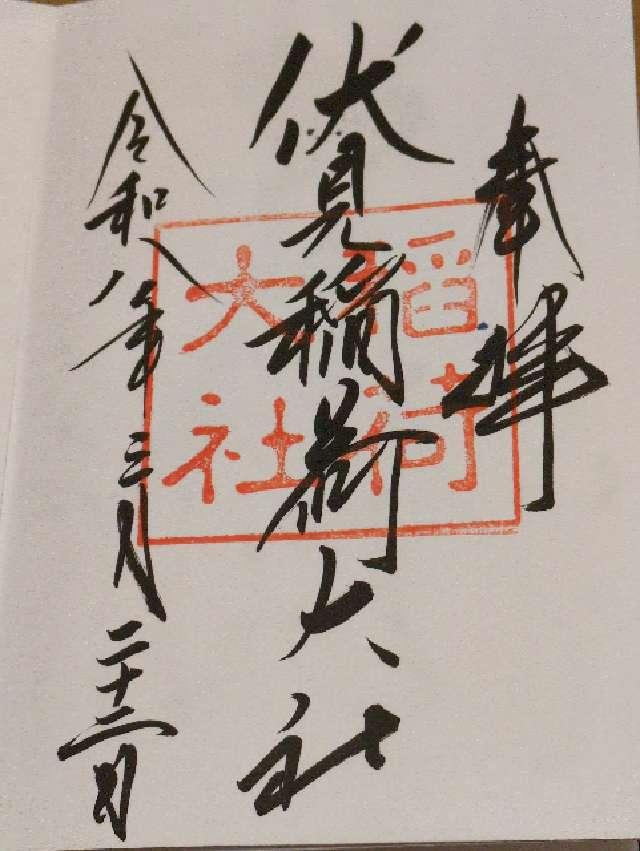 奉拝
伏見稲荷大社
令和八年三月二十三日
稲荷
大社